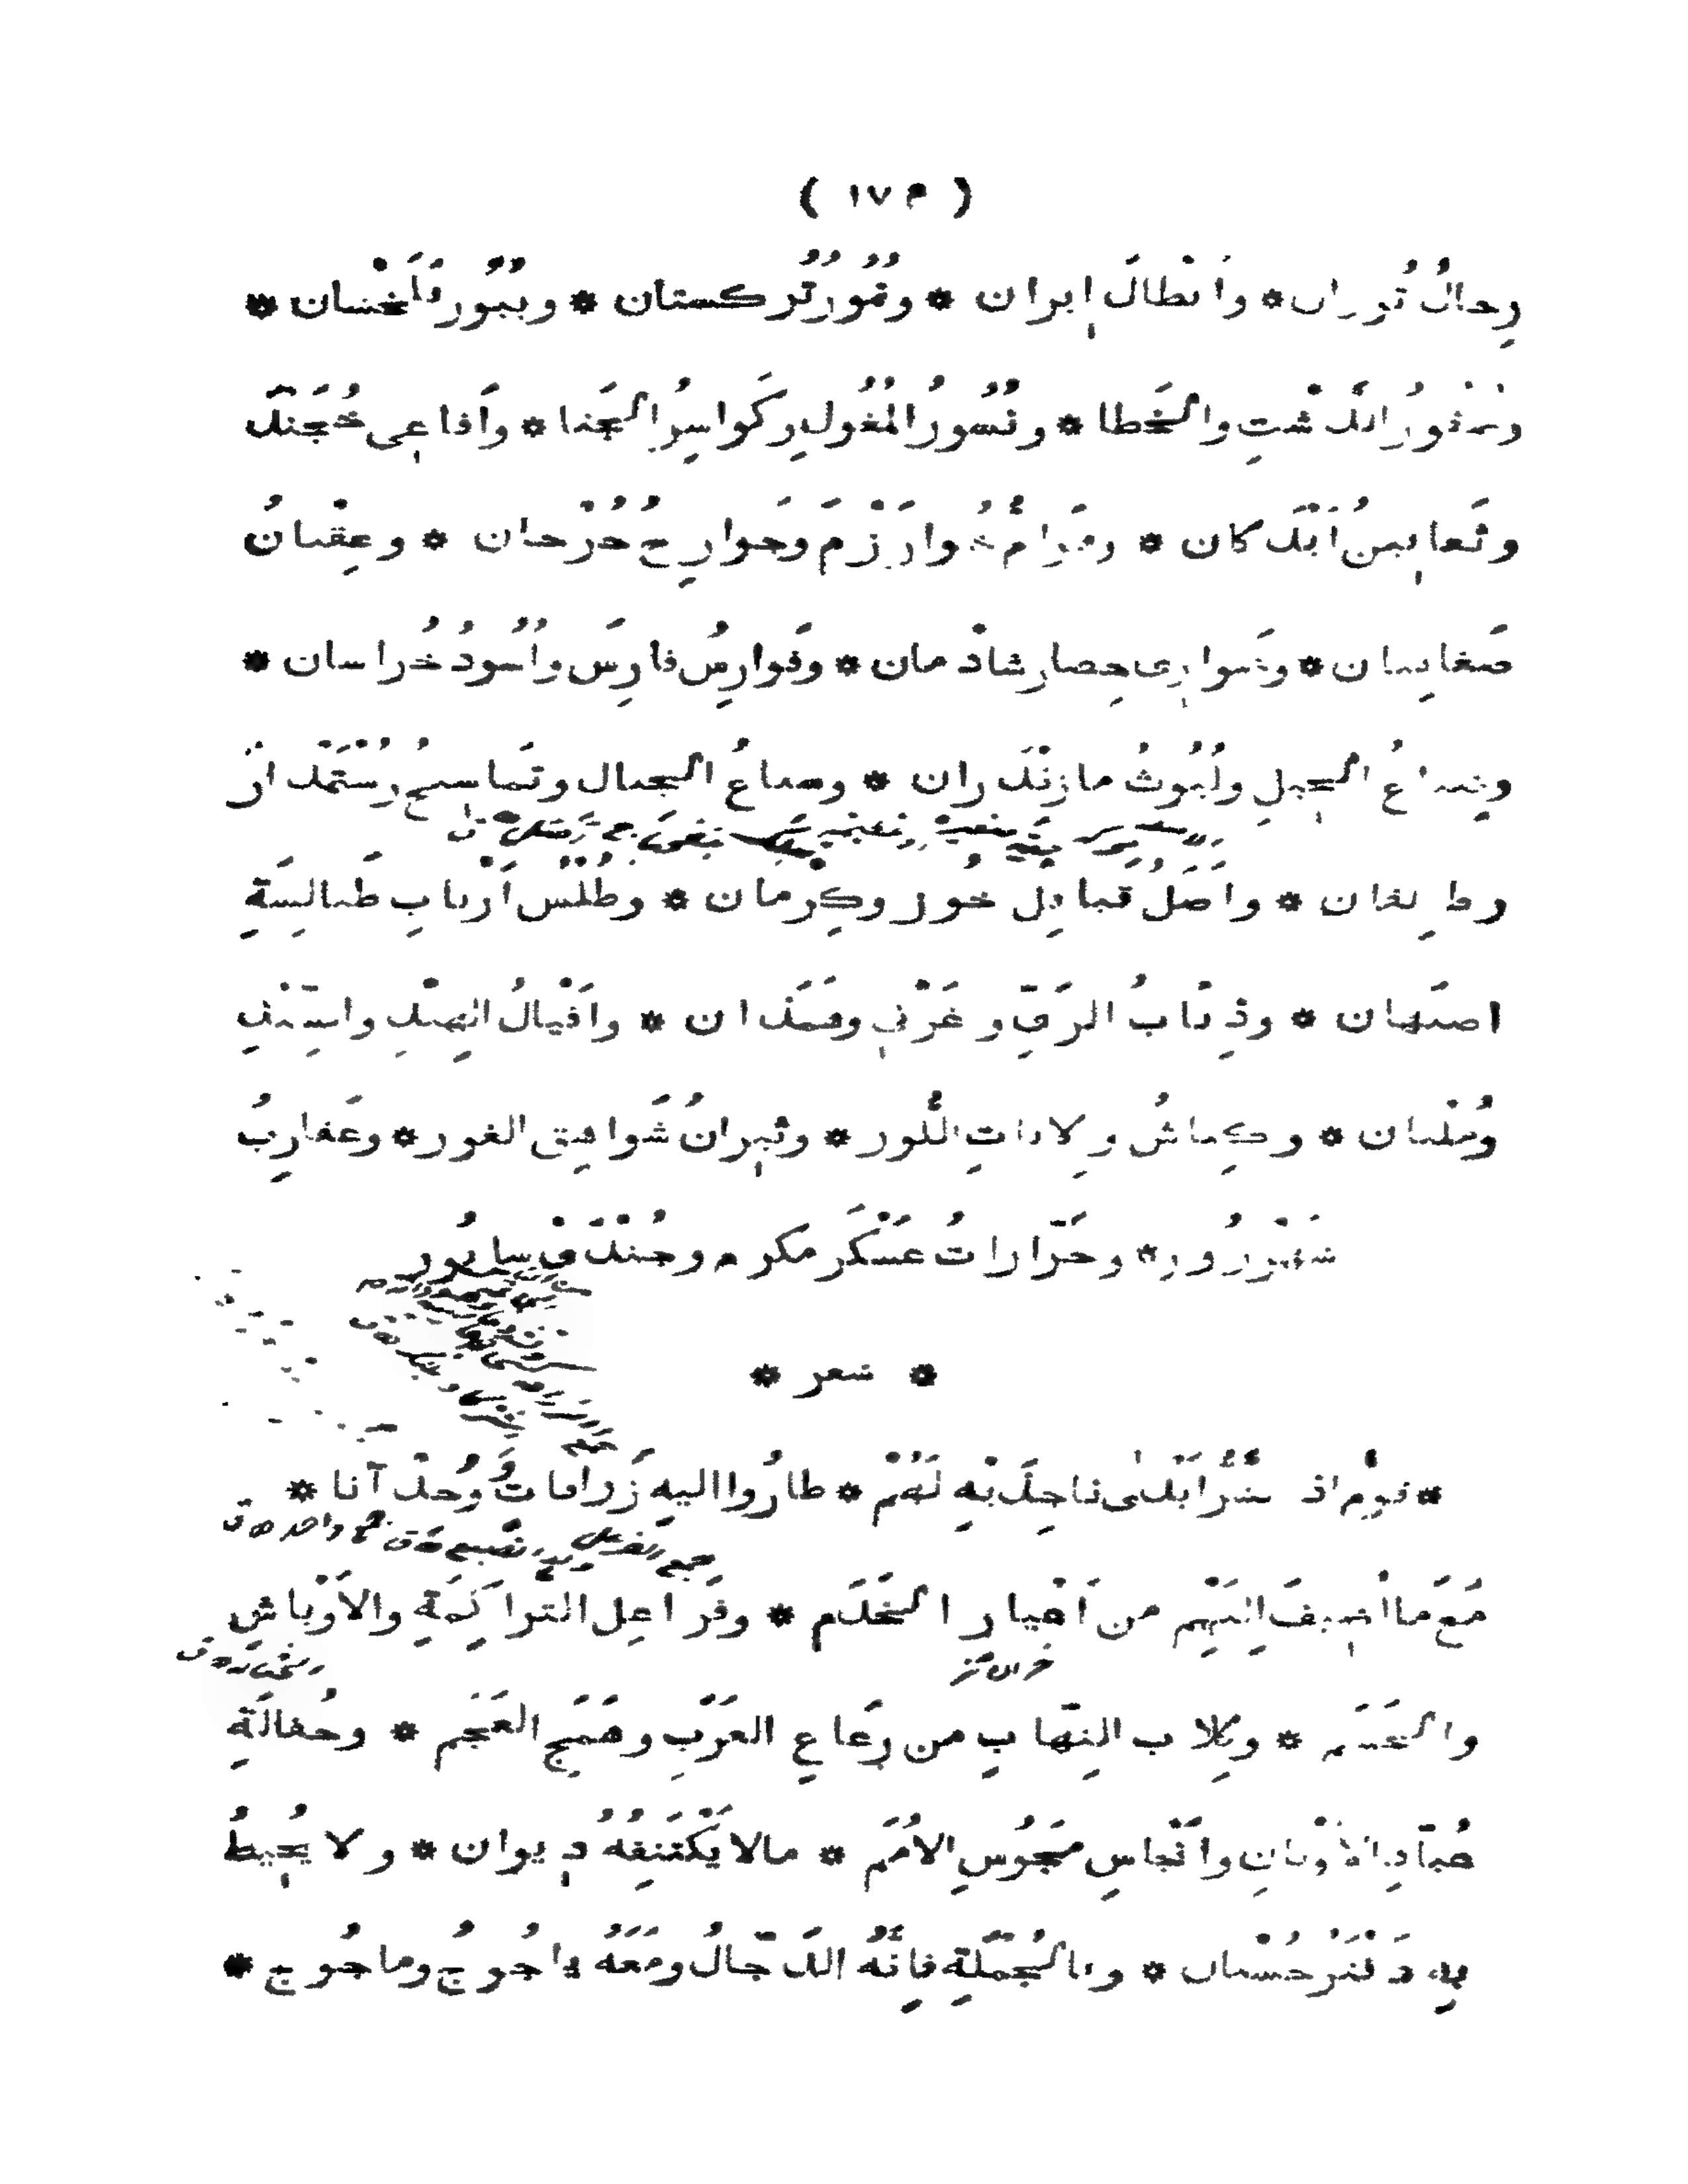 ( ١٧٣ )
رِجالُ تُوران * وأبْطالُ إيران * ونُمُورُ تُركستان * وبُبُورُ بَلَخْشان *
وصُقُورُ الدَّشْتِ والخَطا * ونُسُورُ المُغُولِ وكَواسِرُ الجَتا * وأفاعِي خُجَنْد
وثَعابينُ أَنْدَكان * وهَوامُّ خُوارَزْمَ وجَوارِحُ جُرْجان * وعِقْبانُ
صَغانِيان * وضَوارِي حِصارِ شادْمان * وفَوارِسُ فارِسَ وأُسُودُ خُراسان *
وضِباعُ الجِيلِ ولُيُوثُ مازِنْدَران * وسِباعُ الجِبال وتَماسيحُ رُسْتَمْدار
وطالِقان * وأصَلُ قبايِل خُوز وكِرْمان * وطُلْسُ أرْبابِ طَيالِسَةِ
اصبَهان * وذِئابُ الرَيِّ وغَزْني وهَمَذان * وأفْيالُ الهِنْدِ والسِّنْدِ
ومُلْتان * وكِباشُ وِلاياتِ اللُّور * وثِيرانُ شَواهِقِ الغور * وعَقارِبُ
شَهْرَزُور * وحَرّاراتُ عَسْكَرِ مكرم وجُنْدَيْ سابُور
* شعر *
* قومٌ اذا الشَّرُّ أبْدى ناجِذَيْهِ لَهُمْ * طارُوا اليه زَرافاتٍ وَوُحْدانا *
مَعَ ما أُضيفَ إلَيْهِم من أخْيارِ الخَدَم * وفَراعِل التراكِمَةِ والأَوْباشِ
والحَشَم * وكِلاب النِّهابِ من رَعاعِ العَرَبِ وهَمَجِ العَجَم * وحُفالَةِ
عُبّادِ الأوْثانِ وأنْجاسِ مَجُوسِ الأُمَم * مالا يَكْتَنِفُهُ دِيوان * ولا يُحِيطُ
بِهِ دَفْتَرُ حُسْبان * وبالجُمْلَةِ فإنَّهُ الدَّجّالُ ومَعَهُ يَاجُوجُ ومأجُوج *